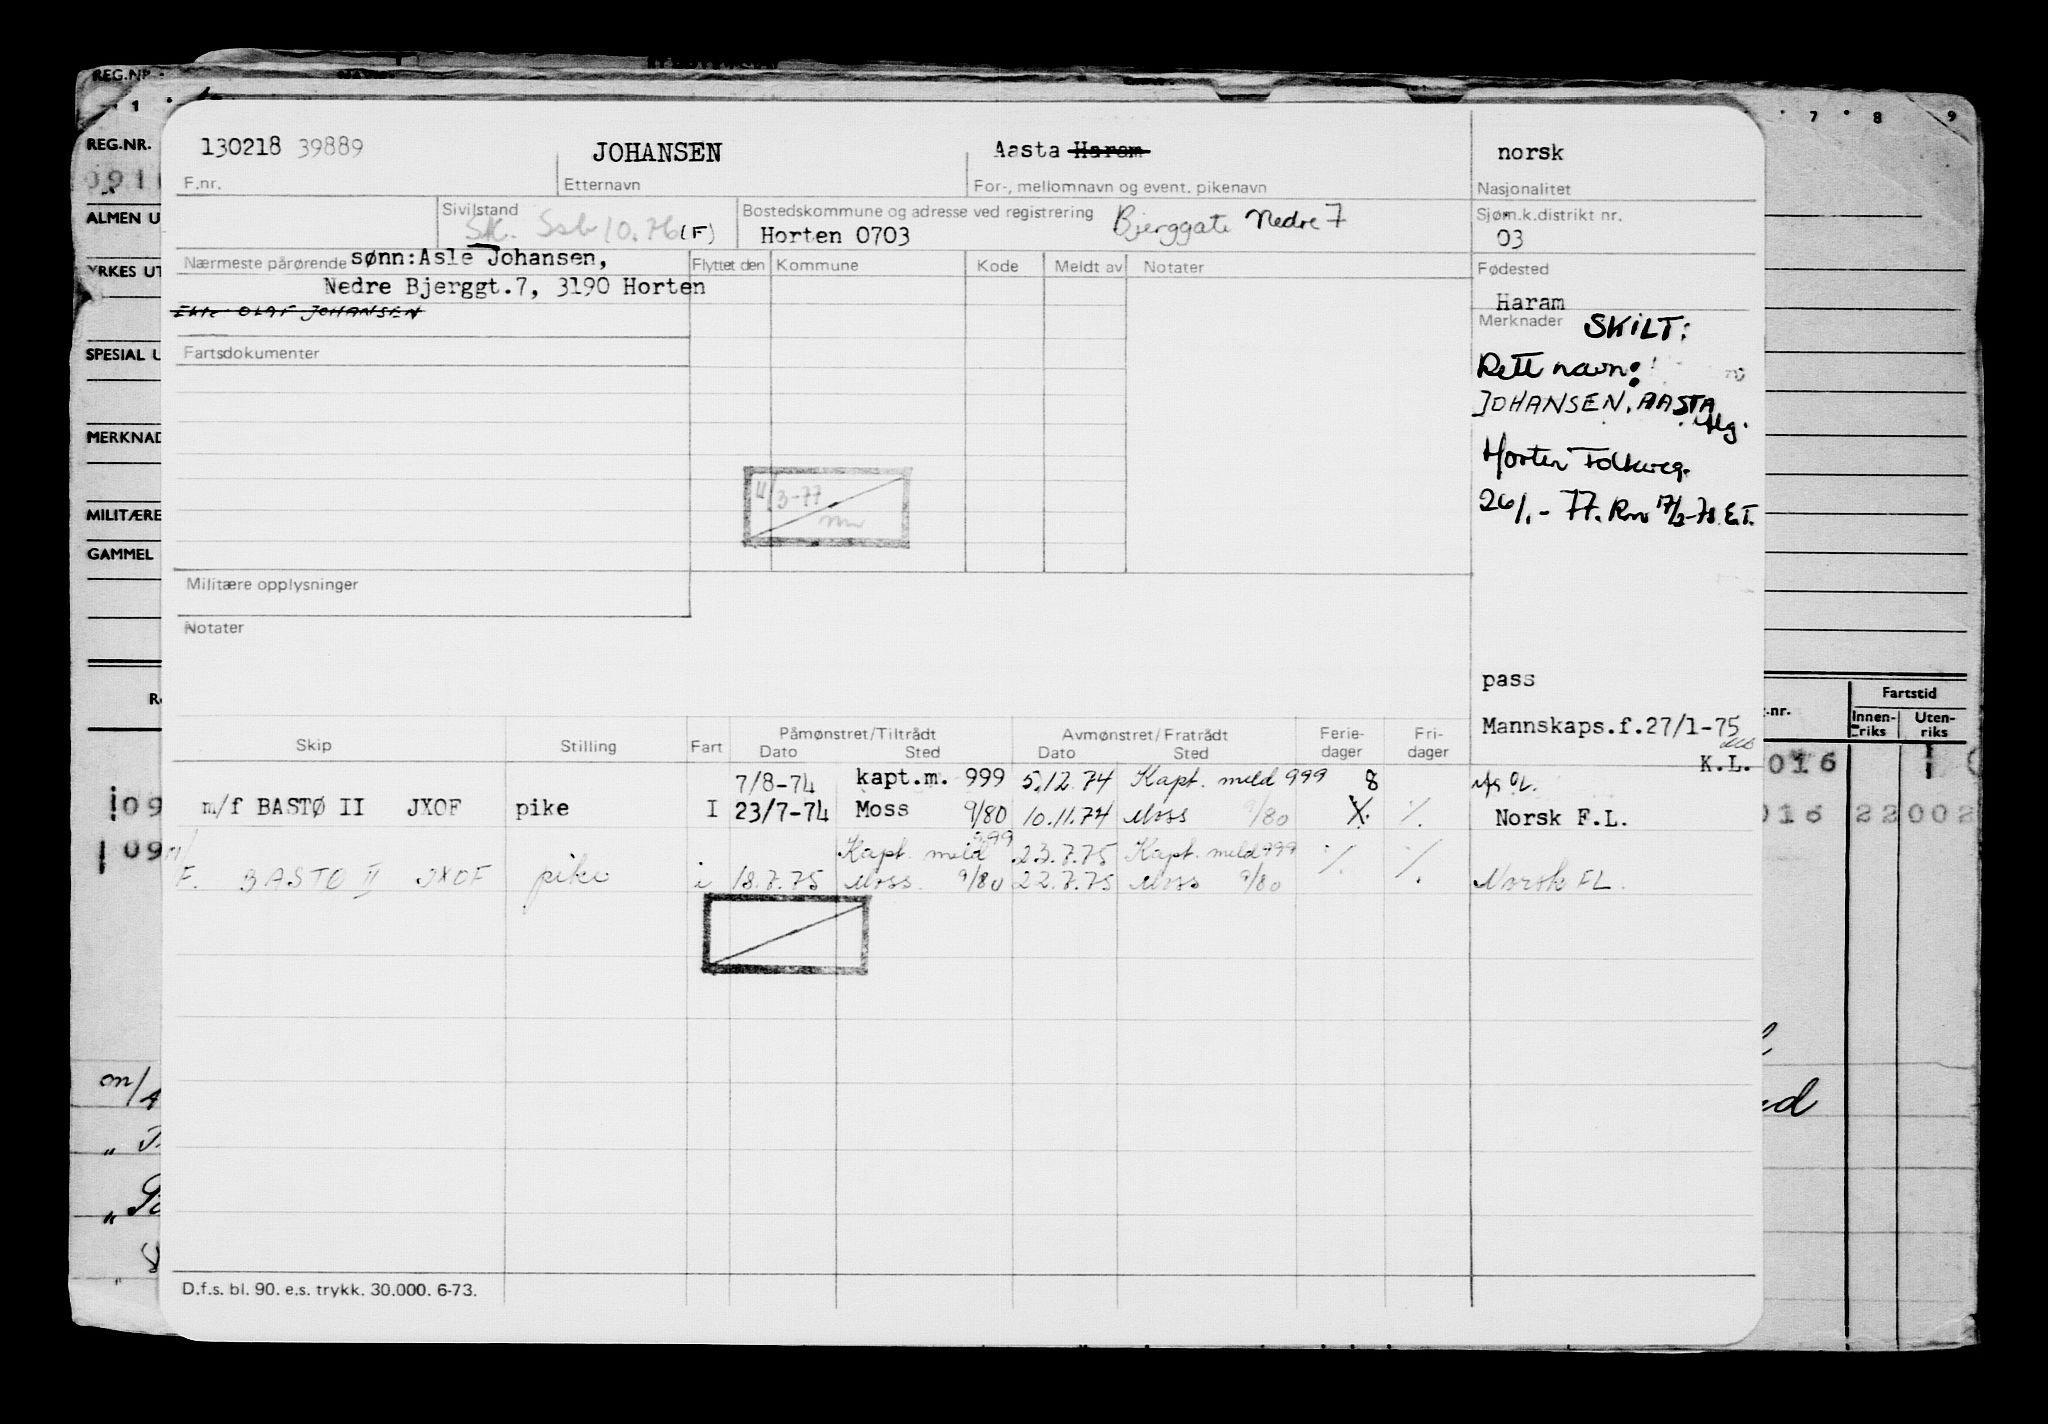 REG.NR.
1
7 8 9
REG.NR.
ALMEN U
YRKES UT
SPESIAL U
MERKNAD
MILITÆRE
GAMMEL
130218 39889 JOHANSEN Aasta Haram norsk
F.nr. Etternavn For-, mellomnavn og event. pikenavn Nasjonalitet
Sivilstand Bostedskommune og adresse ved registrering Bjerggate Nedre 7 Sjøm.k.distrikt nr.
10.76 (F) Horten 0703 03
Nærmeste pårørende sønn:Asle Johansen, Flyttet den Kommune Kode Meldt av Notater Fødested
Nedre Bjerggt.7, 3190 Horten
Haram
OLAF JOHANSEN
Merknader SKILT:
Fartsdokumenter
Rett navn:
JOHANSEN, AASTA
iflg.
Horten Folkereg.
26/1-77. Rm 17/2-78 E.T.
11/3-77
Militære opplysninger
Notater
pass
Mannskaps.f.27/1-75
K.L.
Skip Stilling Fart Påmønstret/Tiltrådt Dato Sted Avmønstret/Fratrådt Dato Sted Ferie-dager Fri-dager
7/8-74 kapt.m. 999 5.12.74 Kapt. meld 999 8
m/f BASTØ II JXOF pike I 23/7-74 Moss 9/80 10.11.74 Moss 9/80 X % Norsk F.L.
Kapt. meld 999 23.7.75 Kapt. meld 999
M/F. BASTO II JXOF pike i 18.7.75 Moss. 9/80 22.7.75 Moss 9/80 % % Norsk FL.
D.f.s. bl. 90. e.s. trykk. 30.000. 6-73.
Fartstid
Innen-riks Uten-riks
016
016 22002